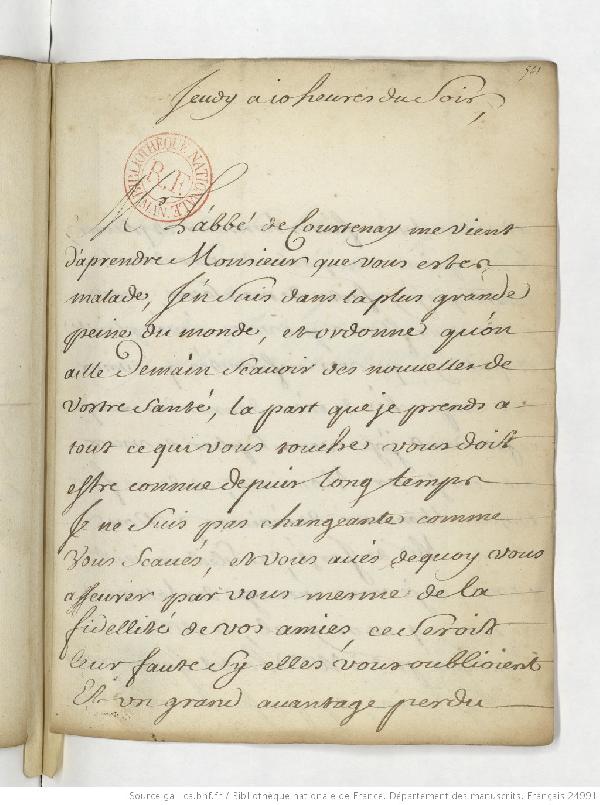 501
Jeudy a 10 heures du Soir,
BIBLIOTHÈQUE NATIONALE
R.F.
L'abbé de Courtenay me vient
d'aprendre Monsieur que vous estes
malade, J'en Suis dans la plus grande
peine du monde, et ordonne qu'on
aille Demain Scauoir des nouuelles de
Vostre Santé, la part que je prends a
tout ce qui vous touche vous doit
estre connue depuis long temps
Je ne Suis pas changeante comme
Vous Scaués, et vous aués de quoy vous
asseurer par vous mesme de la
fidellité de vos amies, ce Seroit
leur faute Sy elles vous oublioient
Et vn grand auantage perdu
Source gallica.bnf.fr / Bibliothèque nationale de France. Département des manuscrits. Français 24991